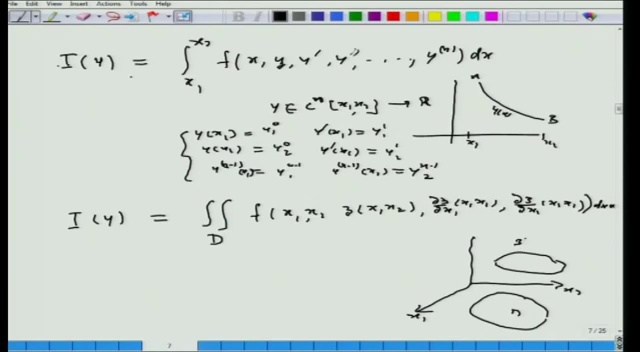 File Edit View Insert Actions Tools Help
I(y) = ∫_{x_1}^{x_2} f(x, y, y', y'', ..., y^{(n)}) dx
y ∈ C^n [x_1, x_2] → R
y(x_1) = y_1^0 y'(x_1) = y_1^1
y(x_2) = y_2^0 y'(x_2) = y_2^1
y^{(n-1)}(x_1) = y_1^{n-1} y^{(n-1)}(x_2) = y_2^{n-1}
A
y(x)
B
x_1 x_2
I(y) = ∬_D f(x_1, x_2, z(x_1, x_2), ∂z/∂x_1 (x_1, x_2), ∂z/∂x_2 (x_1, x_2))
z
x_2
D
x_1
7 / 25
7